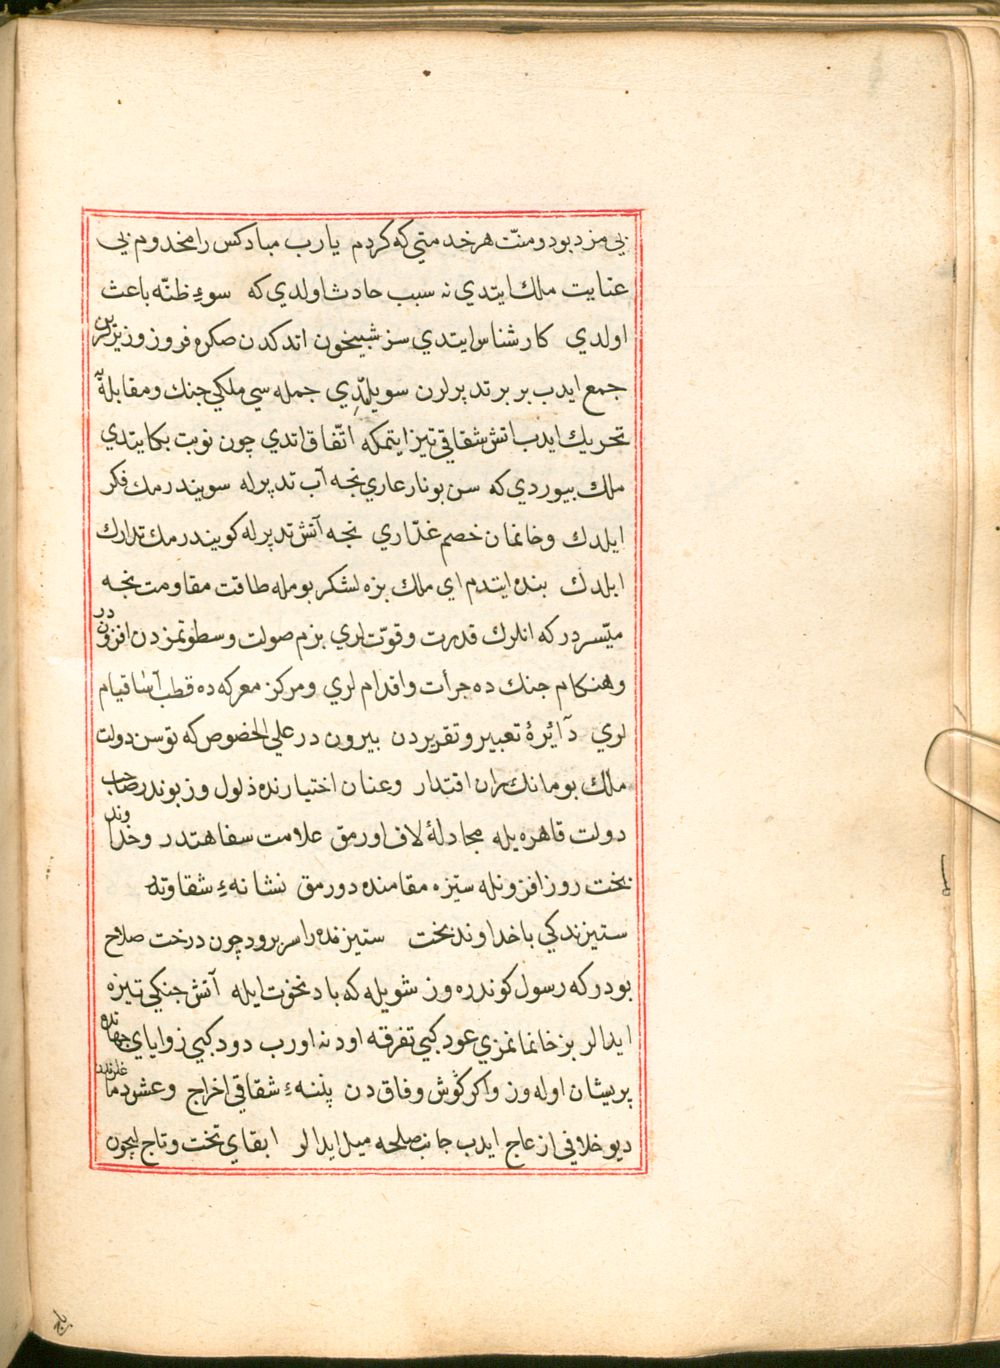 بي مزد بود ومنّت هر خدمتي كه كردم يا رب مباد كس را مخدوم بي
عنايت ملك ايتدي نه سبب حادث اولدي كه سوءِ ظنّه باعث
اولدي كارشناس ايتدي سز شبيخون اتدكدن صكره فروز وزيرلرين
جمع ايدب بر بر تدبيرلرن سويلدّي جمله سي ملكي جنك ومقابلۀ
تحريك ايدب اتش شقاقي تيز ايتمكه اتّفاق اتدي چون نوبت بكا يتدي
ملك بيوردي كه سن بو نار عاري نجه آب تدبيرله سويندرمك فكر
ايلدك وخانمان خصم غدّاري نجه آتش تدبيرله كويندرمك تدارك
ايلدك بنده ايتدم اي ملك بزه لشكر بومله طاقت مقاومت نجه
ميّسر در كه انلرك قدرت وقوّتلري بزم صولت وسطوتمزدن افزوندر
وهنكام جنك ده جرأت واقدام لري ومركز معركه ده قطب آسا قيام
لري دآئرۀ تعبير وتقريردن بيرون در علي الخصوص كه توسن دولت
ملك بومانك ران اقتدار وعنان اختيارنده ذلول وزبوندر صاحب
دولت قاهره يله مجادلۀ لاف اورمق علامت سفاهتدر وخداوند
بخت روز افزونله ستيزه مقامنده دورمق نشانۀءِ شقاوته
ستيزندكي با خداوند بخت ستيزنده را سر برود چون درخت صلاح
بودر كه رسول كوندره وز شويله كه باد نخوت ايله آتش جنكي تيزه
ايدالر بز خانمانمزي عود كبي تفرقه اودنه اورب دود كبي زواياي جهانده
پريشان اوله وز واكر كوش وفاق دن پنبهءِ شقاقي اخراج وعش دماغلرندن
ديو خلافي ازعاج ايدب جانب صلحه ميل ايدالر ابقاي تخت وتاج ايچون